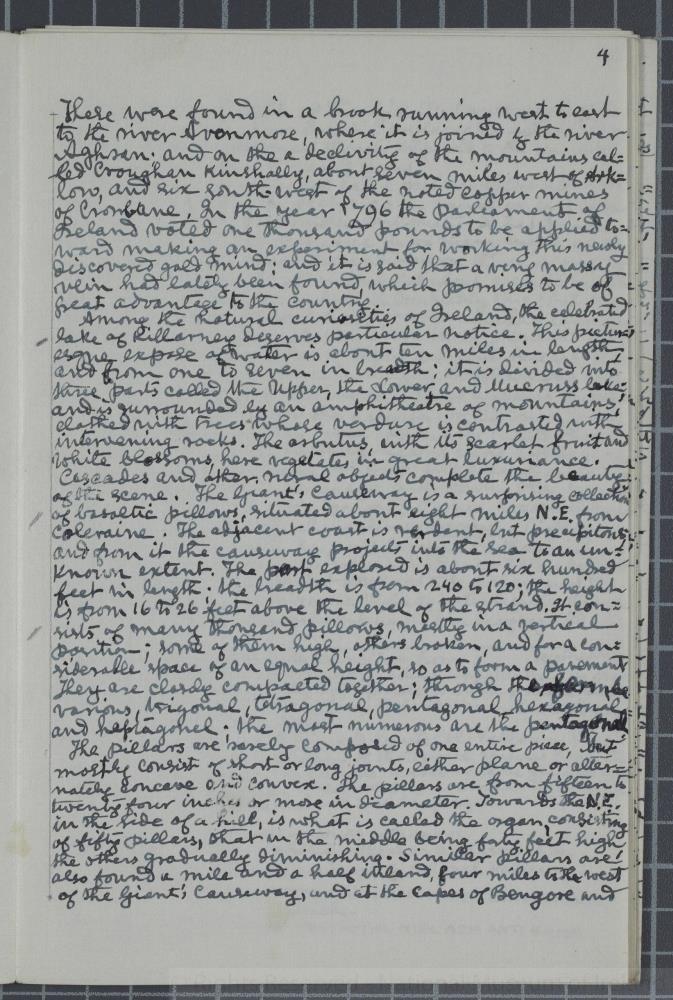 4
These were found in a brook running west to east
to the river Avonmore, where it is joined by the river
Aghran; and on the a declivity of the mountains cal=
led Croughan Kinshally, about seven miles west of Ark=
low, and six south-west of the noted copper mines
of Cronbane. In the year 1796 the Parliament of
Ireland voted one thousand pounds to be applied to=
ward making an experiment for working this newly
discovered gold mind; and it is said that a very massy
vein had lately been found, which promises to be of
great advantage to the country.
Among the natural curiosities of Ireland, the celebrated
lake of Killarney deserves particular notice. This pictur=
esque expose of water is about ten miles in length,
and from one to seven in breadth; it is divided into
three parts called the Upper, the Lower, and Mucruss lake
and is surrounded by an amphitheatre of mountains,
clothed with trees whose verdure is contrasted with
intervening rocks. The arbutus, with its scarlet fruit and
white blossoms, here vegetates in great luxuriance.
Cascades and other rural objects complete the beauty
of the scene. The Giant's Causeway is a surprising collection
of basaltic pillows, situated about eight miles N.E. from
Coleraine. The adjacent coast is verdent, but precipitous
and from it the causeway projects into the sea to an un=
known extent. The part explored is about six hundred
feet in length; the breadth is from 240 to 120; the height
is from 16 to 26 feet above the level of the strand. It con=
sists of many thousand pillows, mostly in a vertical
position; some of them high, others broken, and for a con=
siderable space of an equal height, so as to form a pavement
They are closely compacted together; through the
various, trigonal, tetragonal, pentagonal, hexagonal,
and heptagonel; the most numerous are the pentagonal
The pillars are rarely composed of one entire piece, but
mostly consist of short or long joints, either plane or alter=
nately concave and convex. The pillars are from fifteen to
twenty four inches or more in diameter. Towards the N.E.
in the side of a hill, is what is called the organ, consisting
of fifty pillars, that in the middle being forty feet high
the others gradually diminishing. Similar pillars are
also found a mile and a half inland, four miles to the west
of the Giant's Causeway, and at the capes of Bengore and